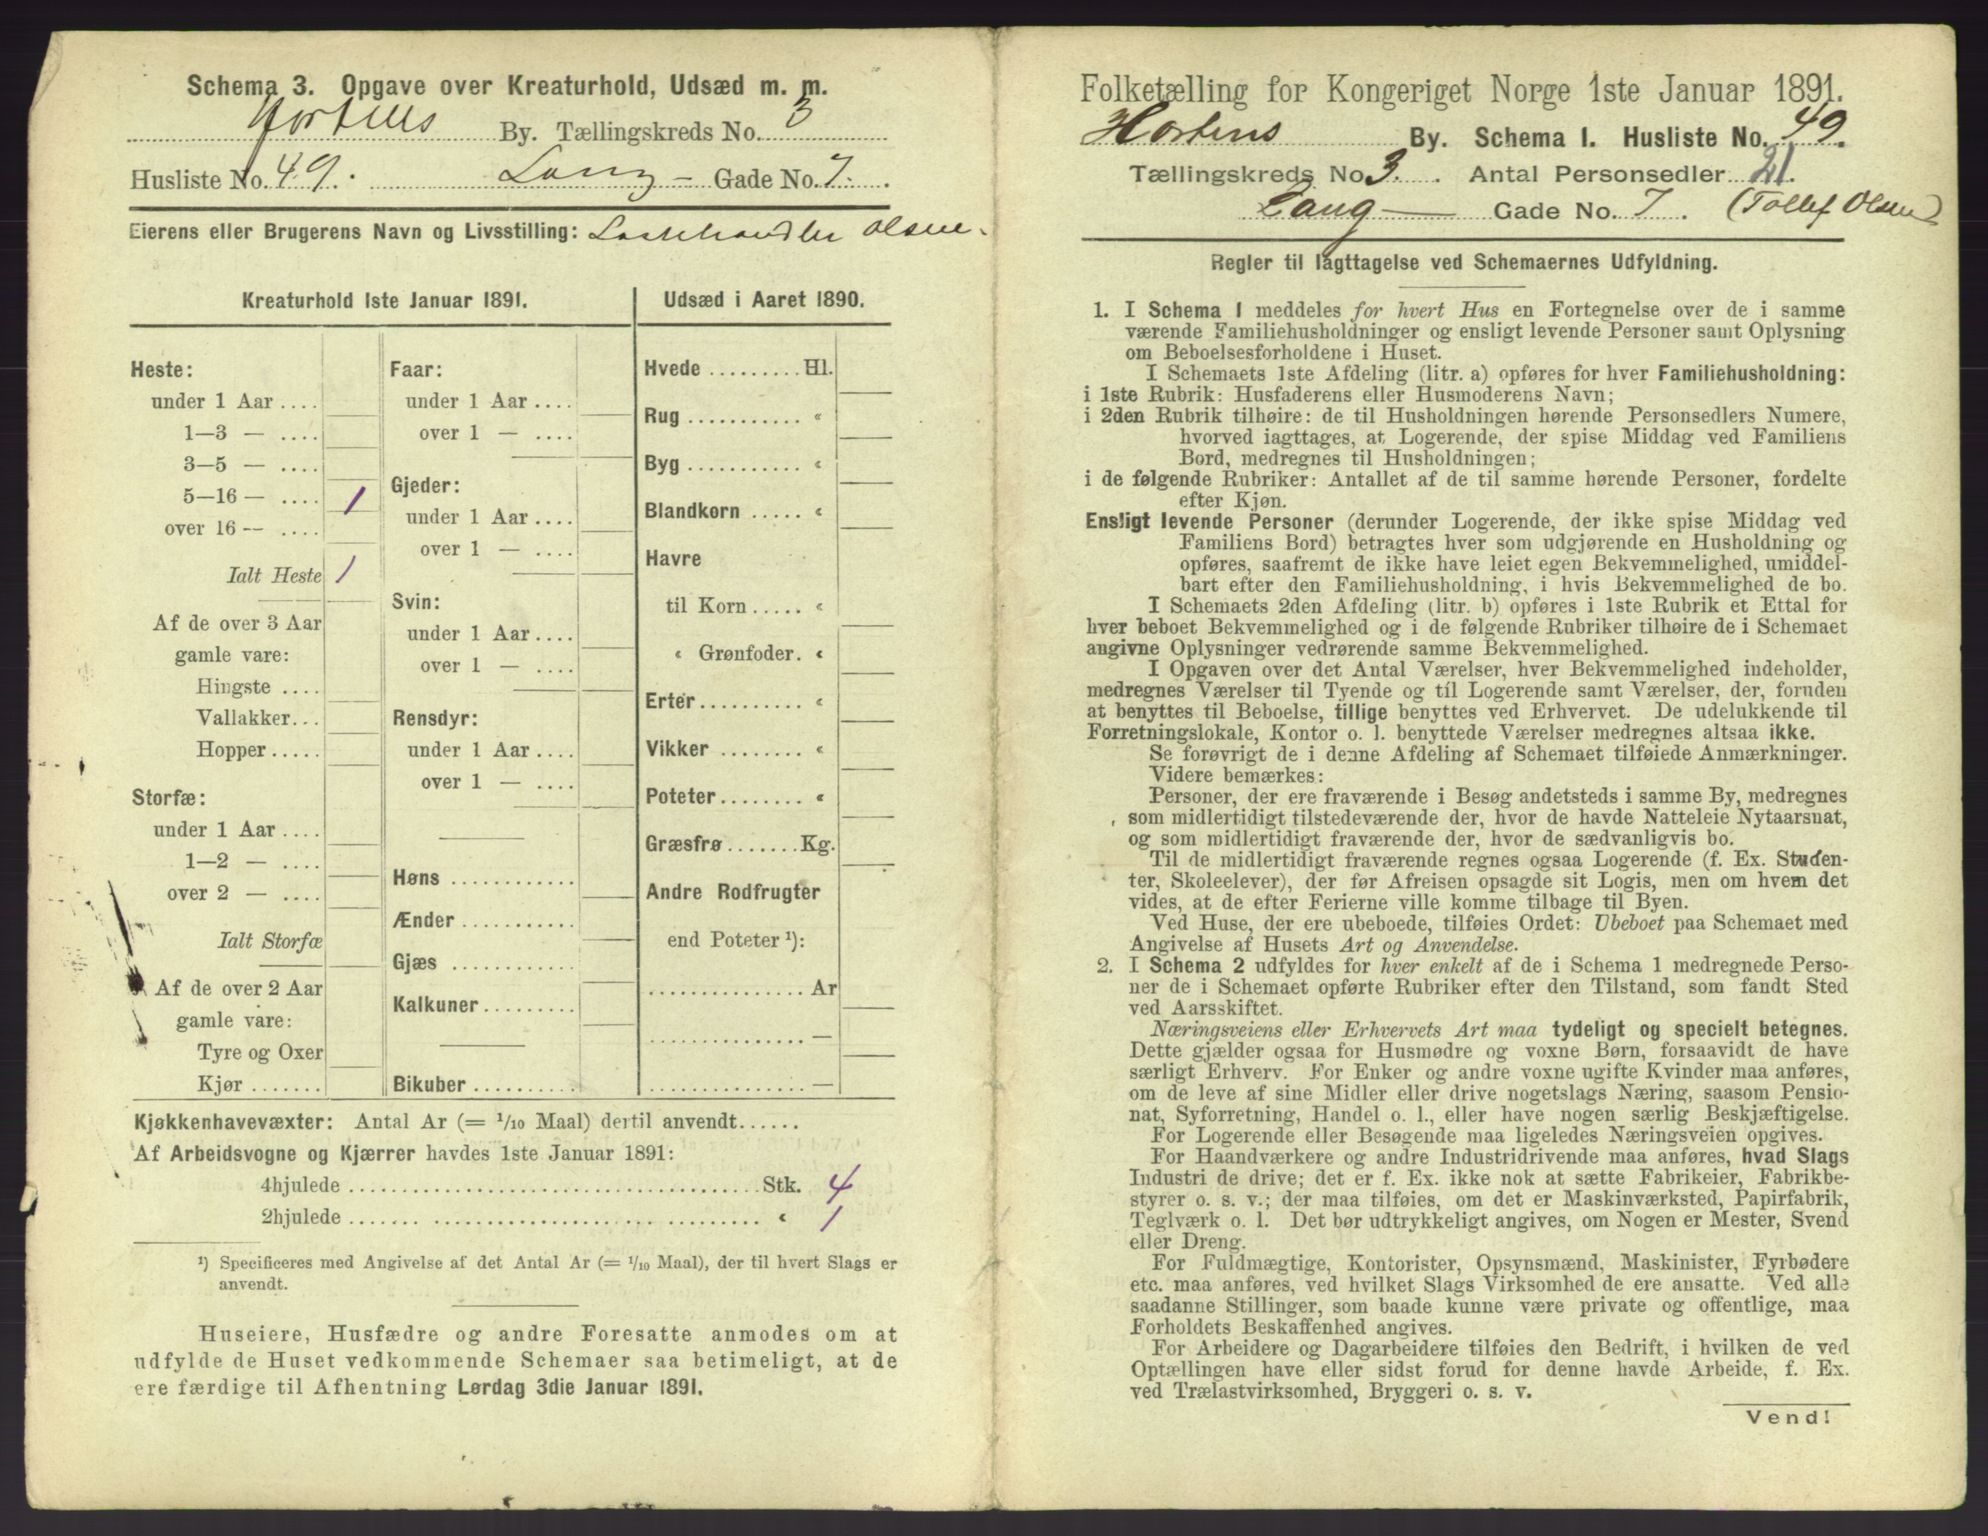 Schema 3. Opgave over Kreaturhold, Udsæd m. m.
Hortens By. Tællingskreds No. 3
Husliste No. 49. Lang — Gade No. 7.
Eierens eller Brugerens Navn og Livsstilling: Olsen.
Kreaturhold 1ste Januar 1891.
Heste:
under 1 Aar ....
1—3 — ....
3—5 — ....
5—16 — .... 1
over 16 — ....
Ialt Heste 1
Af de over 3 Aar
gamle vare:
Hingste ....
Vallakker...
Hopper.....
Storfæ:
under 1 Aar....
1—2 — ....
over 2 — ....
Ialt Storfæ
Af de over 2 Aar
gamle vare:
Tyre og Oxer
Kjør .......
Faar:
under 1 Aar ....
over 1 — ....
Gjeder:
under 1 Aar....
over 1 — ....
Svin:
under 1 Aar....
over 1 — ....
Rensdyr:
under 1 Aar....
over 1 — ....
Høns ............
Ænder ...........
Gjæs ............
Kalkuner.........
Bikuber..........
Udsæd i Aaret 1890.
Hvede ......... Hl.
Rug ........... «
Byg ........... «
Blandkorn ..... «
Havre
til Korn ..... «
« Grønfoder. «
Erter.......... «
Vikker ........ «
Poteter........ «
Græsfrø.......Kg.
Andre Rodfrugter
end Poteter ¹):
............... Ar
............... —
............... —
Kjøkkenhavevæxter: Antal Ar (= 1/10 Maal) dertil anvendt......
Af Arbeidsvogne og Kjærrer havdes 1ste Januar 1891:
4hjulede ........................................ Stk. 4
2hjulede ........................................ « 1
¹) Specificeres med Angivelse af det Antal Ar (= 1/10 Maal), der til hvert Slags er
anvendt.
Huseiere, Husfædre og andre Foresatte anmodes om at
udfylde de Huset vedkommende Schemaer saa betimeligt, at de
ere færdige til Afhentning Lørdag 3die Januar 1891.
Folketælling for Kongeriget Norge 1ste Januar 1891.
Hortens By. Schema 1. Husliste No. 49.
Tællingskreds No. 3. Antal Personsedler 21.
Lang — Gade No. 7. (Tollef Olsen)
Regler til Iagttagelse ved Schemaernes Udfyldning.
1. I Schema 1 meddeles for hvert Hus en Fortegnelse over de i samme
værende Familiehusholdninger og ensligt levende Personer samt Oplysning
om Beboelsesforholdene i Huset.
I Schemaets 1ste Afdeling (litr. a) opføres for hver Familiehusholdning:
i 1ste Rubrik: Husfaderens eller Husmoderens Navn;
i 2den Rubrik tilhøire: de til Husholdningen hørende Personsedlers Numere,
hvorved iagttages, at Logerende, der spise Middag ved Familiens
Bord, medregnes til Husholdningen;
i de følgende Rubriker: Antallet af de til samme hørende Personer, fordelte
efter Kjøn.
Ensligt levende Personer (derunder Logerende, der ikke spise Middag ved
Familiens Bord) betragtes hver som udgjørende en Husholdning og
opføres, saafremt de ikke have leiet egen Bekvemmelighed, umiddel-
bart efter den Familiehusholdning, i hvis Bekvemmelighed de bo.
I Schemaets 2den Afdeling (litr. b) opføres i 1ste Rubrik et Ettal for
hver beboet Bekvemmelighed og i de følgende Rubriker tilhøire de i Schemaet
angivne Oplysninger vedrørende samme Bekvemmelighed.
I Opgaven over det Antal Værelser, hver Bekvemmelighed indeholder,
medregnes Værelser til Tyende og til Logerende samt Værelser, der, foruden
at benyttes til Beboelse, tillige benyttes ved Erhvervet. De udelukkende til
Forretningslokale, Kontor o. l. benyttede Værelser medregnes altsaa ikke.
Se forøvrigt de i denne Afdeling af Schemaet tilføiede Anmærkninger.
Videre bemærkes:
Personer, der ere fraværende i Besøg andetsteds i samme By, medregnes
som midlertidigt tilstedeværende der, hvor de havde Natteleie Nytaarsnat,
og som midlertidigt fraværende der, hvor de sædvanligvis bo.
Til de midlertidigt fraværende regnes ogsaa Logerende (f. Ex. Studen-
ter, Skoleelever), der før Afreisen opsagde sit Logis, men om hvem det
vides, at de efter Ferierne ville komme tilbage til Byen.
Ved Huse, der ere ubeboede, tilføies Ordet: Ubeboet paa Schemaet med
Angivelse af Husets Art og Anvendelse.
2. I Schema 2 udfyldes for hver enkelt af de i Schema 1 medregnede Perso-
ner de i Schemaet opførte Rubriker efter den Tilstand, som fandt Sted
ved Aarsskiftet.
Næringsveiens eller Erhvervets Art maa tydeligt og specielt betegnes.
Dette gjælder ogsaa for Husmødre og voxne Børn, forsaavidt de have
særligt Erhverv. For Enker og andre voxne ugifte Kvinder maa anføres,
om de leve af sine Midler eller drive nogetslags Næring, saasom Pensio-
nat, Syforretning, Handel o. l., eller have nogen særlig Beskjæftigelse.
For Logerende eller Besøgende maa ligeledes Næringsveien opgives.
For Haandværkere og andre Industridrivende maa anføres, hvad Slags
Industri de drive; det er f. Ex. ikke nok at sætte Fabrikeier, Fabrikbe-
styrer o. s. v.; der maa tilføies, om det er Maskinværksted, Papirfabrik,
Teglværk o. l. Det bør udtrykkeligt angives, om Nogen er Mester, Svend
eller Dreng.
For Fuldmægtige, Kontorister, Opsynsmænd, Maskinister, Fyrbødere
etc. maa anføres, ved hvilket Slags Virksomhed de ere ansatte. Ved alle
saadanne Stillinger, som baade kunne være private og offentlige, maa
Forholdets Beskaffenhed angives.
For Arbeidere og Dagarbeidere tilføies den Bedrift, i hvilken de ved
Optællingen have eller sidst forud for denne havde Arbeide, f. Ex.
ved Trælastvirksomhed, Bryggeri o. s. v.
Vend!